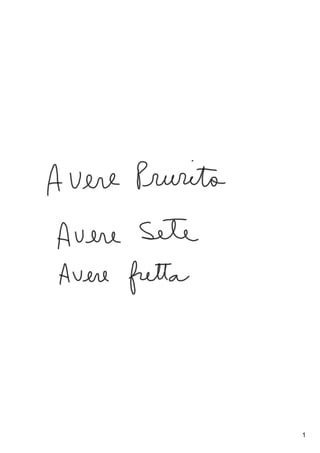 Avere Prurito
Avere Sete
Avere fretta
1